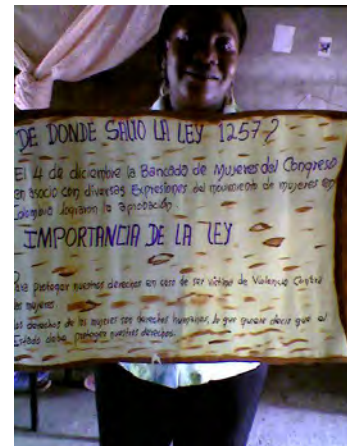 DE DONDE SALIO LA LEY 1257?
El 4 de diciembre la Bancada de Mujeres del Congreso
en asocio con diversas Expresiones del movimiento de mujeres en
Colombia lograron la aprobación
IMPORTANCIA DE LA LEY
Para proteger nuestros derechos en caso de ser víctima de Violencia Contra
las mujeres.
Los derechos de las mujeres son derechos humanos, lo que quiere decir que el
Estado debe proteger nuestros derechos.